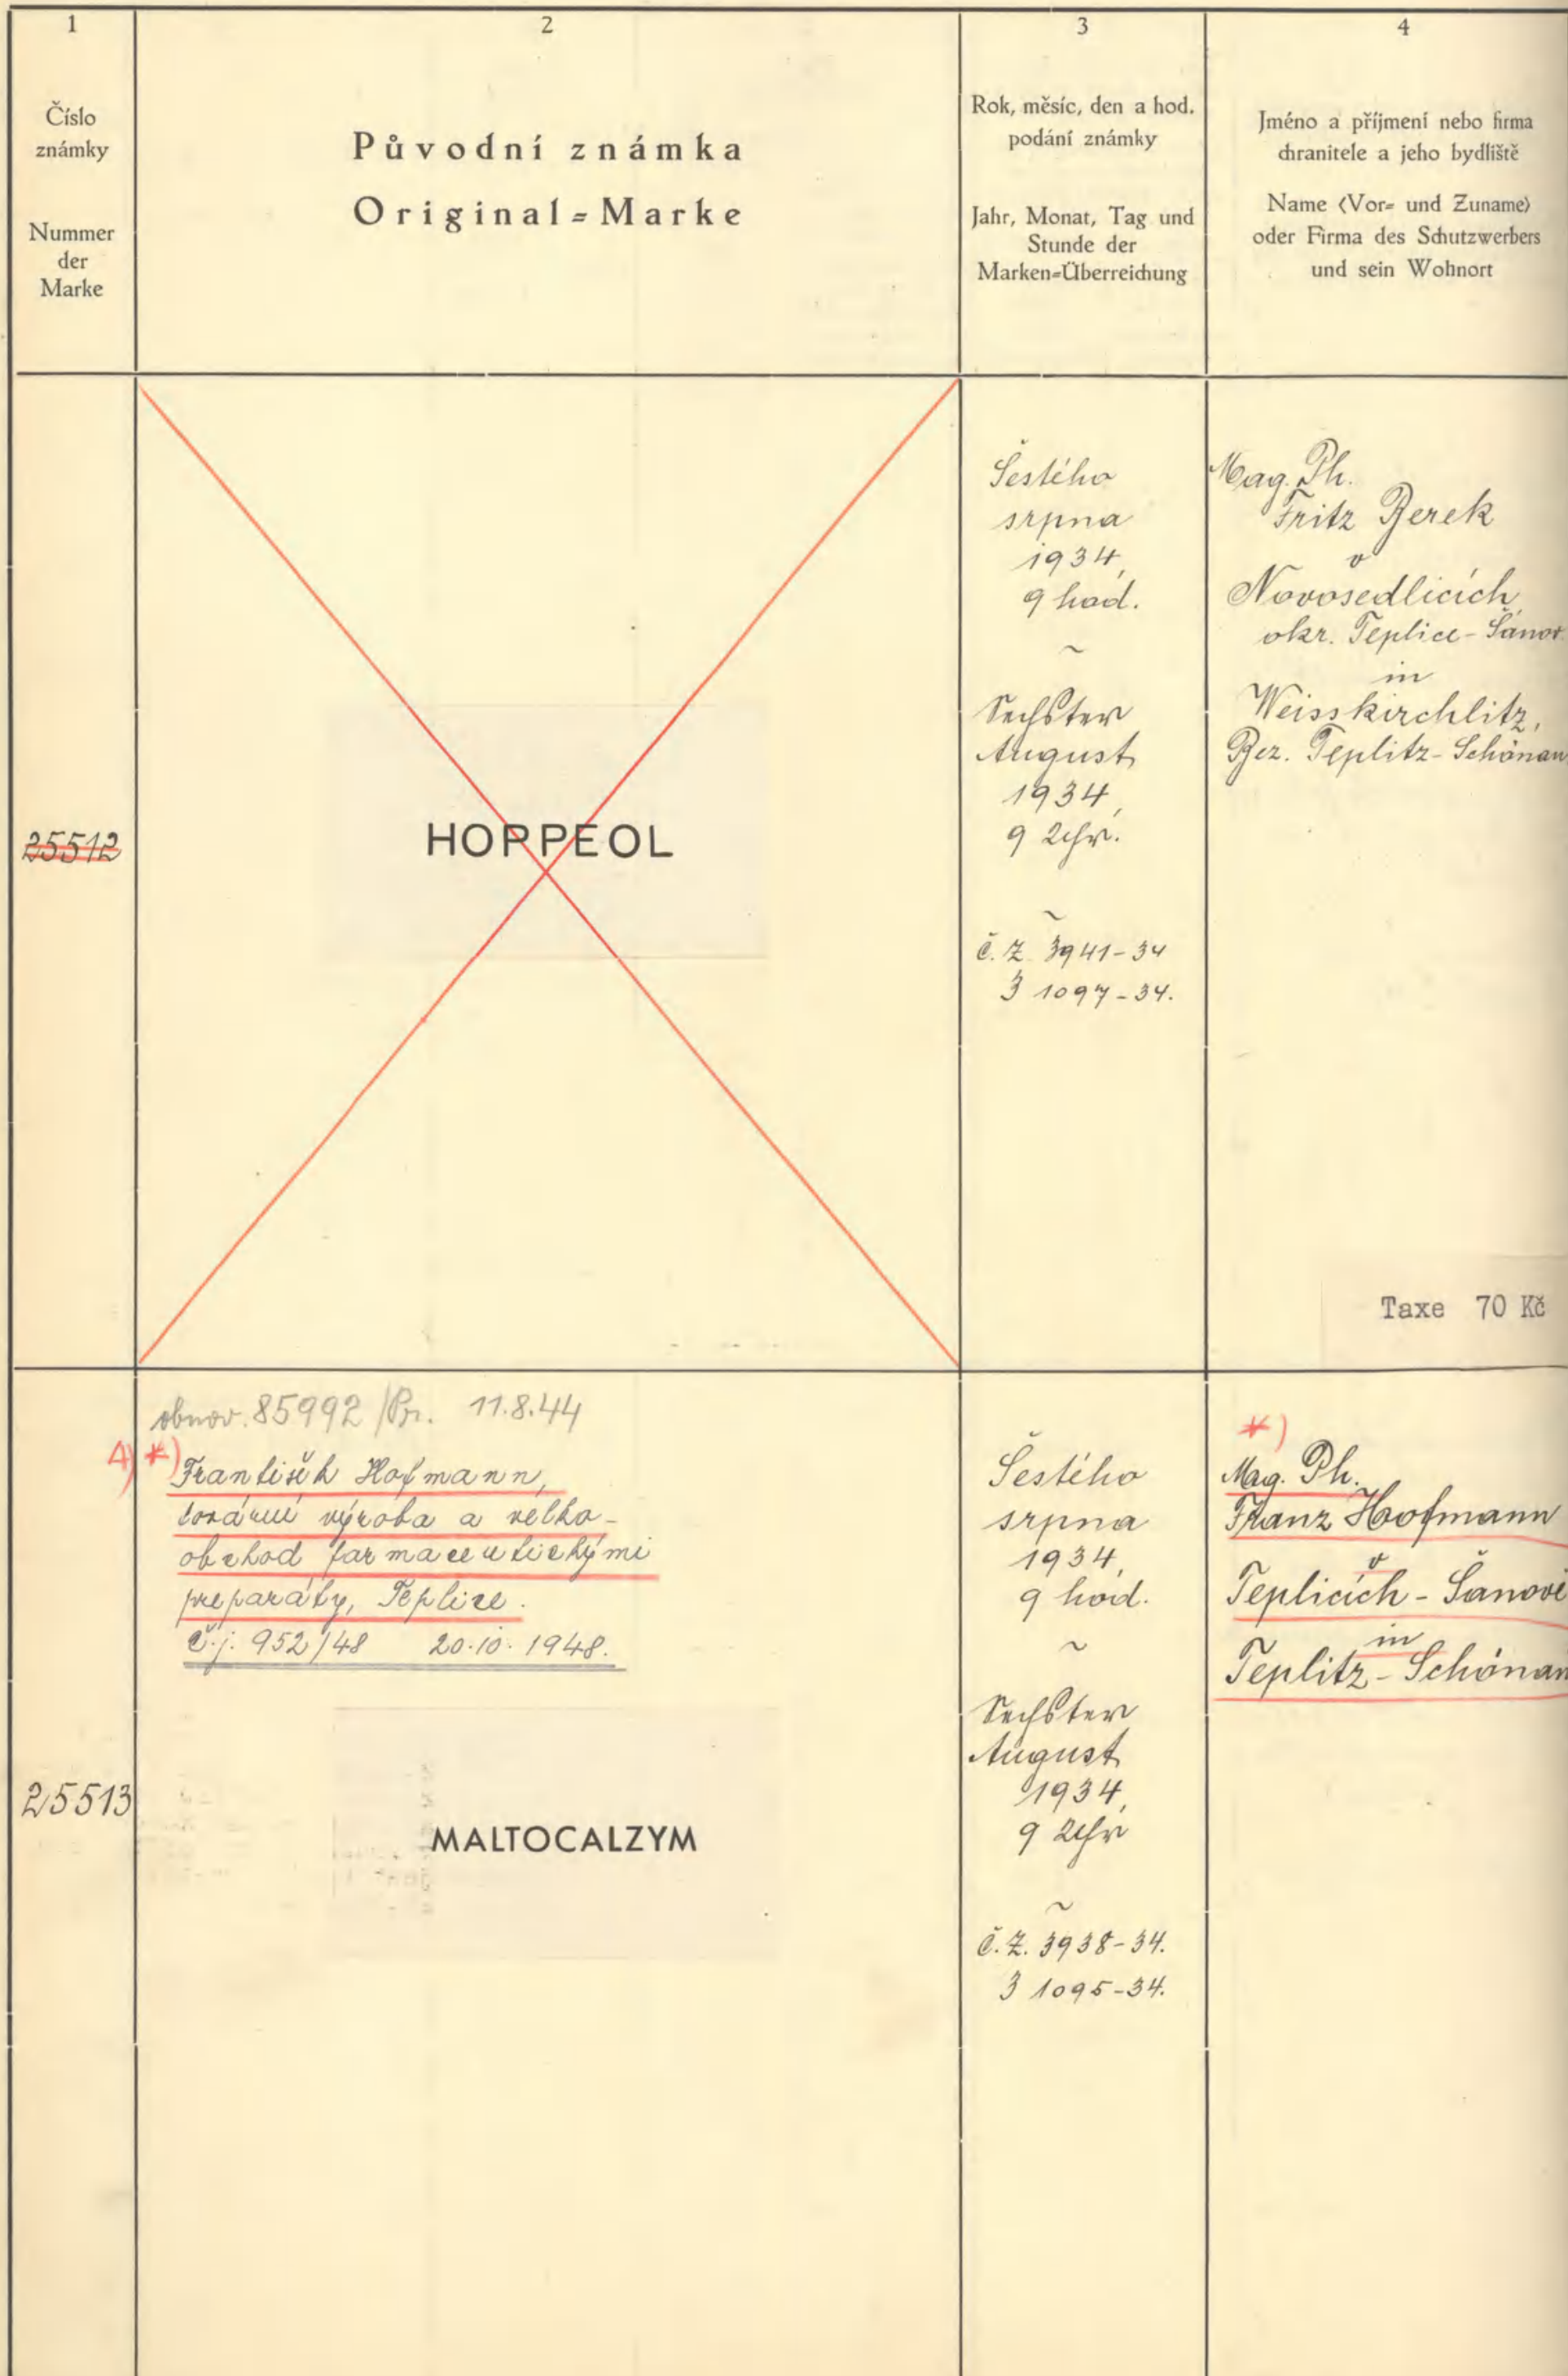 1
Číslo
známky
Nummer
der
Marke
2
Původní známka
Original=Marke
3
Rok, měsíc, den a hod.
podání známky
Jahr, Monat, Tag und
Stunde der
Marken=Überreichung
4
Jméno a příjmení nebo firma
chranitele a jeho bydliště
Name (Vor= und Zuname)
oder Firma des Schutzwerbers
und sein Wohnort
25512
HOPPEOL
Šestého
srpna
1934,
9 hod.
~
Sechster
August
1934,
9 Uhr.
~
č. Z. 3941-34
3 1097-34.
Mag. Ph.
Fritz Berek
v
Novosedlicích,
okr. Teplice-Šanov
in
Weisskirchlitz,
Bez. Teplitz-Schönau
Taxe 70 Kč
25513
obnov. 85992/Pr. 11.8.44
4) *)
František Hofmann,
tovární výroba a velko-
obchod farmaceutickými
preparáty, Teplice.
č.j. 952/48 20.10.1948.
MALTOCALZYM
Šestého
srpna
1934,
9 hod.
~
Sechster
August
1934,
9 Uhr
~
č. Z. 3938-34.
3 1095-34.
*)
Mag. Ph.
Franz Hofmann
v
Teplicích-Šanově
in
Teplitz-Schönau